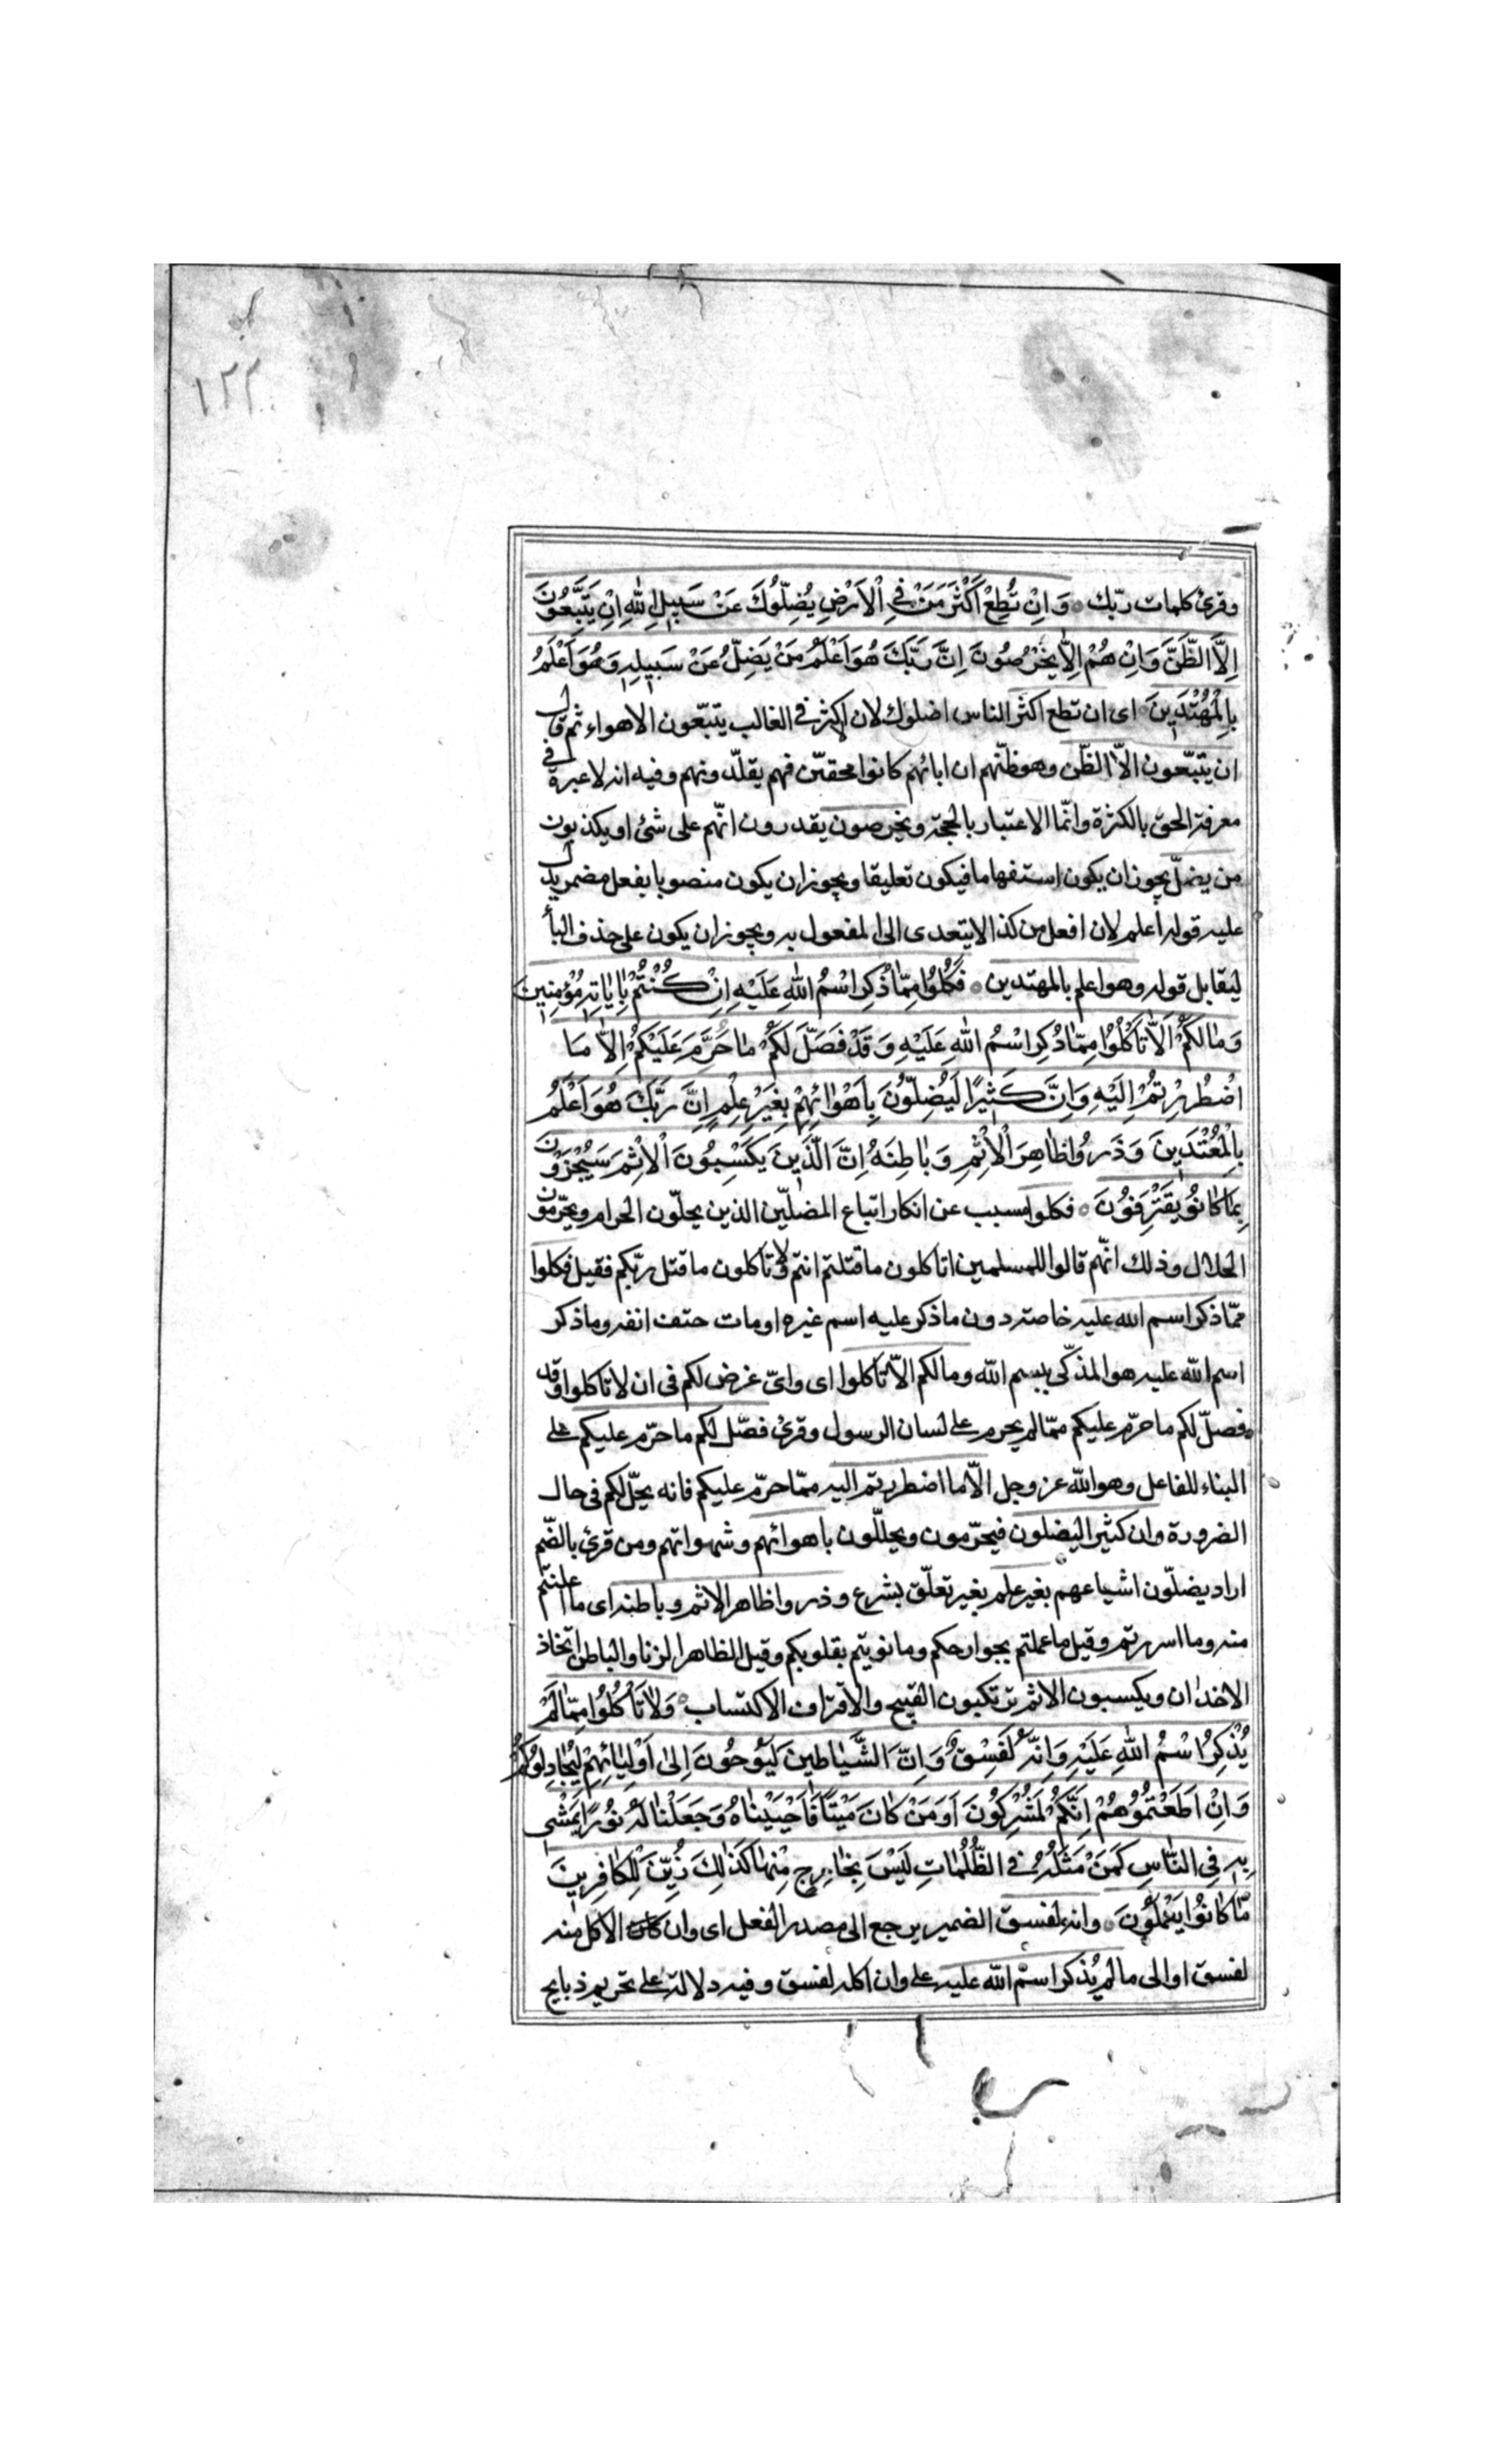 ١٢٢
وقرئ كلمات ربّك وَاِنْ تُطِعْ اَكْثَرَ مَنْ فِي الْاَرْضِ يُضِلّوُكَ عَنْ سَبيلِ اللهِ اِنْ يَتَّبِعُونَ
اِلاَّ الظَّنَّ وَاِنْ هُمْ اِلاّ يَخْرُصُونَ اِنَّ رَبَّكَ هُوَ اَعْلَمُ مَنْ يَضِلُّ عَنْ سَبيلِهِ وَهُوَ اَعْلَمُ
بِالْمُهْتَدينَ اى ان تطع اكثر الناس اضلوك لان الاكثر في الغالب يتبّعون الاهواء ثم قال
ان يتبّعون الاّ الظّن وهو ظنّهم ان ابائهم كانوا محقيّن فهم يقلّدونهم وفيه انه لا عبرة في
معرفة الحق بالكثرة وانّما الاعتبار بالحجة ويخرصون يقدرون انّهم على شئ او يكذبون
من يضلّ يجوز ان يكون استفهاما فيكون تعليقا ويجوز ان يكون منصوبا بفعل مضمر يدل
عليه قوله اعلم لان افعل من كذا لا يتعدى الى المفعول به ويجوز ان يكون على حذف البأ
ليقابل قوله وهو اعلم بالمهتدين فَكُلُوا مِمّا ذُكِرَ اسْمُ اللهِ عَلَيْهِ اِنْ كُنْتُمْ بِاٰيٰاتِهِ مُؤْمِنينَ
وَمٰا لَكُمْ اَلاّ تَأْكُلُوا مِمّا ذُكِرَ اسْمُ اللهِ عَلَيْهِ وَقَدْ فَصَّلَ لَكُمْ مٰا حَرَّمَ عَلَيْكُمْ اِلاّ مَا
اضْطُرِرْتُمْ اِلَيْهِ وَاِنَّ كَثيرًا لَيُضِلّوُنَ بِاَهْوٰائِهِمْ بِغَيْرِ عِلْمٍ اِنَّ رَبَّكَ هُوَ اَعْلَمُ
بِالْمُعْتَدينَ وَذَرُوا ظٰاهِرَ الْاِثْمِ وَبٰاطِنَهُ اِنَّ الَّذينَ يَكْسِبُونَ الْاِثْمَ سَيُجْزَوْنَ
بِمٰا كٰانُو يَقْتَرِفوُنَ فكلوا مسبب عن انكار اتباع المضلّين الذين يحلّون الحرام ويحرّمون
الحلال وذلك انّهم قالوا للمسلمين اتاكلون ما قتلتم انتم ولا تأكلون ما قتل ربّكم فقيل فكلوا
ممّا ذكر اسم الله عليه خاصة دون ما ذكر عليه اسم غيره او مات حتف انفه وما ذكر
اسم الله عليه هو المذكّى ببسم الله وما لكم الاّ تأكلوا اى واىّ غرض لكم فى ان لا تاكلوا وقد
فصلّ لكم ما حرّم عليكم ممّا لم يحرم على لسان الرسول وقرئ فصّل لكم ما حرّم عليكم على
البناء للفاعل وهو الله عز وجل الاّ ما اضطررتم اليه ممّا حرّم عليكم فانه يحلّ لكم فى حال
الضرورة وان كثيرا ليضلون فيحرّمون ويحللّون باهوائهم وشهواتهم ومن قرئ بالضّم
اراد يضلّون اشياعهم بغير علم بغير تعلّق بشرع وذروا ظاهر الاثم وباطنه اى ما اعلنتم
منه وما اسررتم وقيل ما عملتم بجوارحكم وما نويتم بقلوبكم وقيل الظاهر الزنا والباطن اتخاذ
الاخدان ويكسبون الاثم يرتكبون القبيح والاقتراف الاكتساب وَلاٰ تَأْكُلُوا مِمّا لَمْ
يُذْكَرِ اسْمُ اللهِ عَلَيْهِ وَاِنَّهُ لَفِسْقٌ وَاِنَّ الشَّيٰاطينَ لَيُوحُونَ اِلىٰ اَوْلِيٰائِهِمْ لِيُجٰادِلُوكُمْ
وَاِنْ اَطَعْتُمُوهُمْ اِنَّكُمْ لَمُشْرِكُونَ اَوَمَنْ كٰانَ مَيْتًا فَاَحْيَيْنٰاهُ وَجَعَلْنٰا لَهُ نوُرًا يَمْشي
بِهِ فِي النّٰاسِ كَمَنْ مَثَلُهُ فِي الظُّلُمٰاتِ لَيْسَ بِخٰارِجٍ مِنْهٰا كَذٰلِكَ زُيِّنَ لِلْكٰافِرينَ
مٰا كٰانوُا يَعْمَلُونَ وانه لفسق الضمير يرجع الى مصدر الفعل اى وان الاكل منه
لفسق او الى ما لم يُذكر اسم الله عليه على وان اكله لفسق وفيه دلالة على تحريم ذبايح